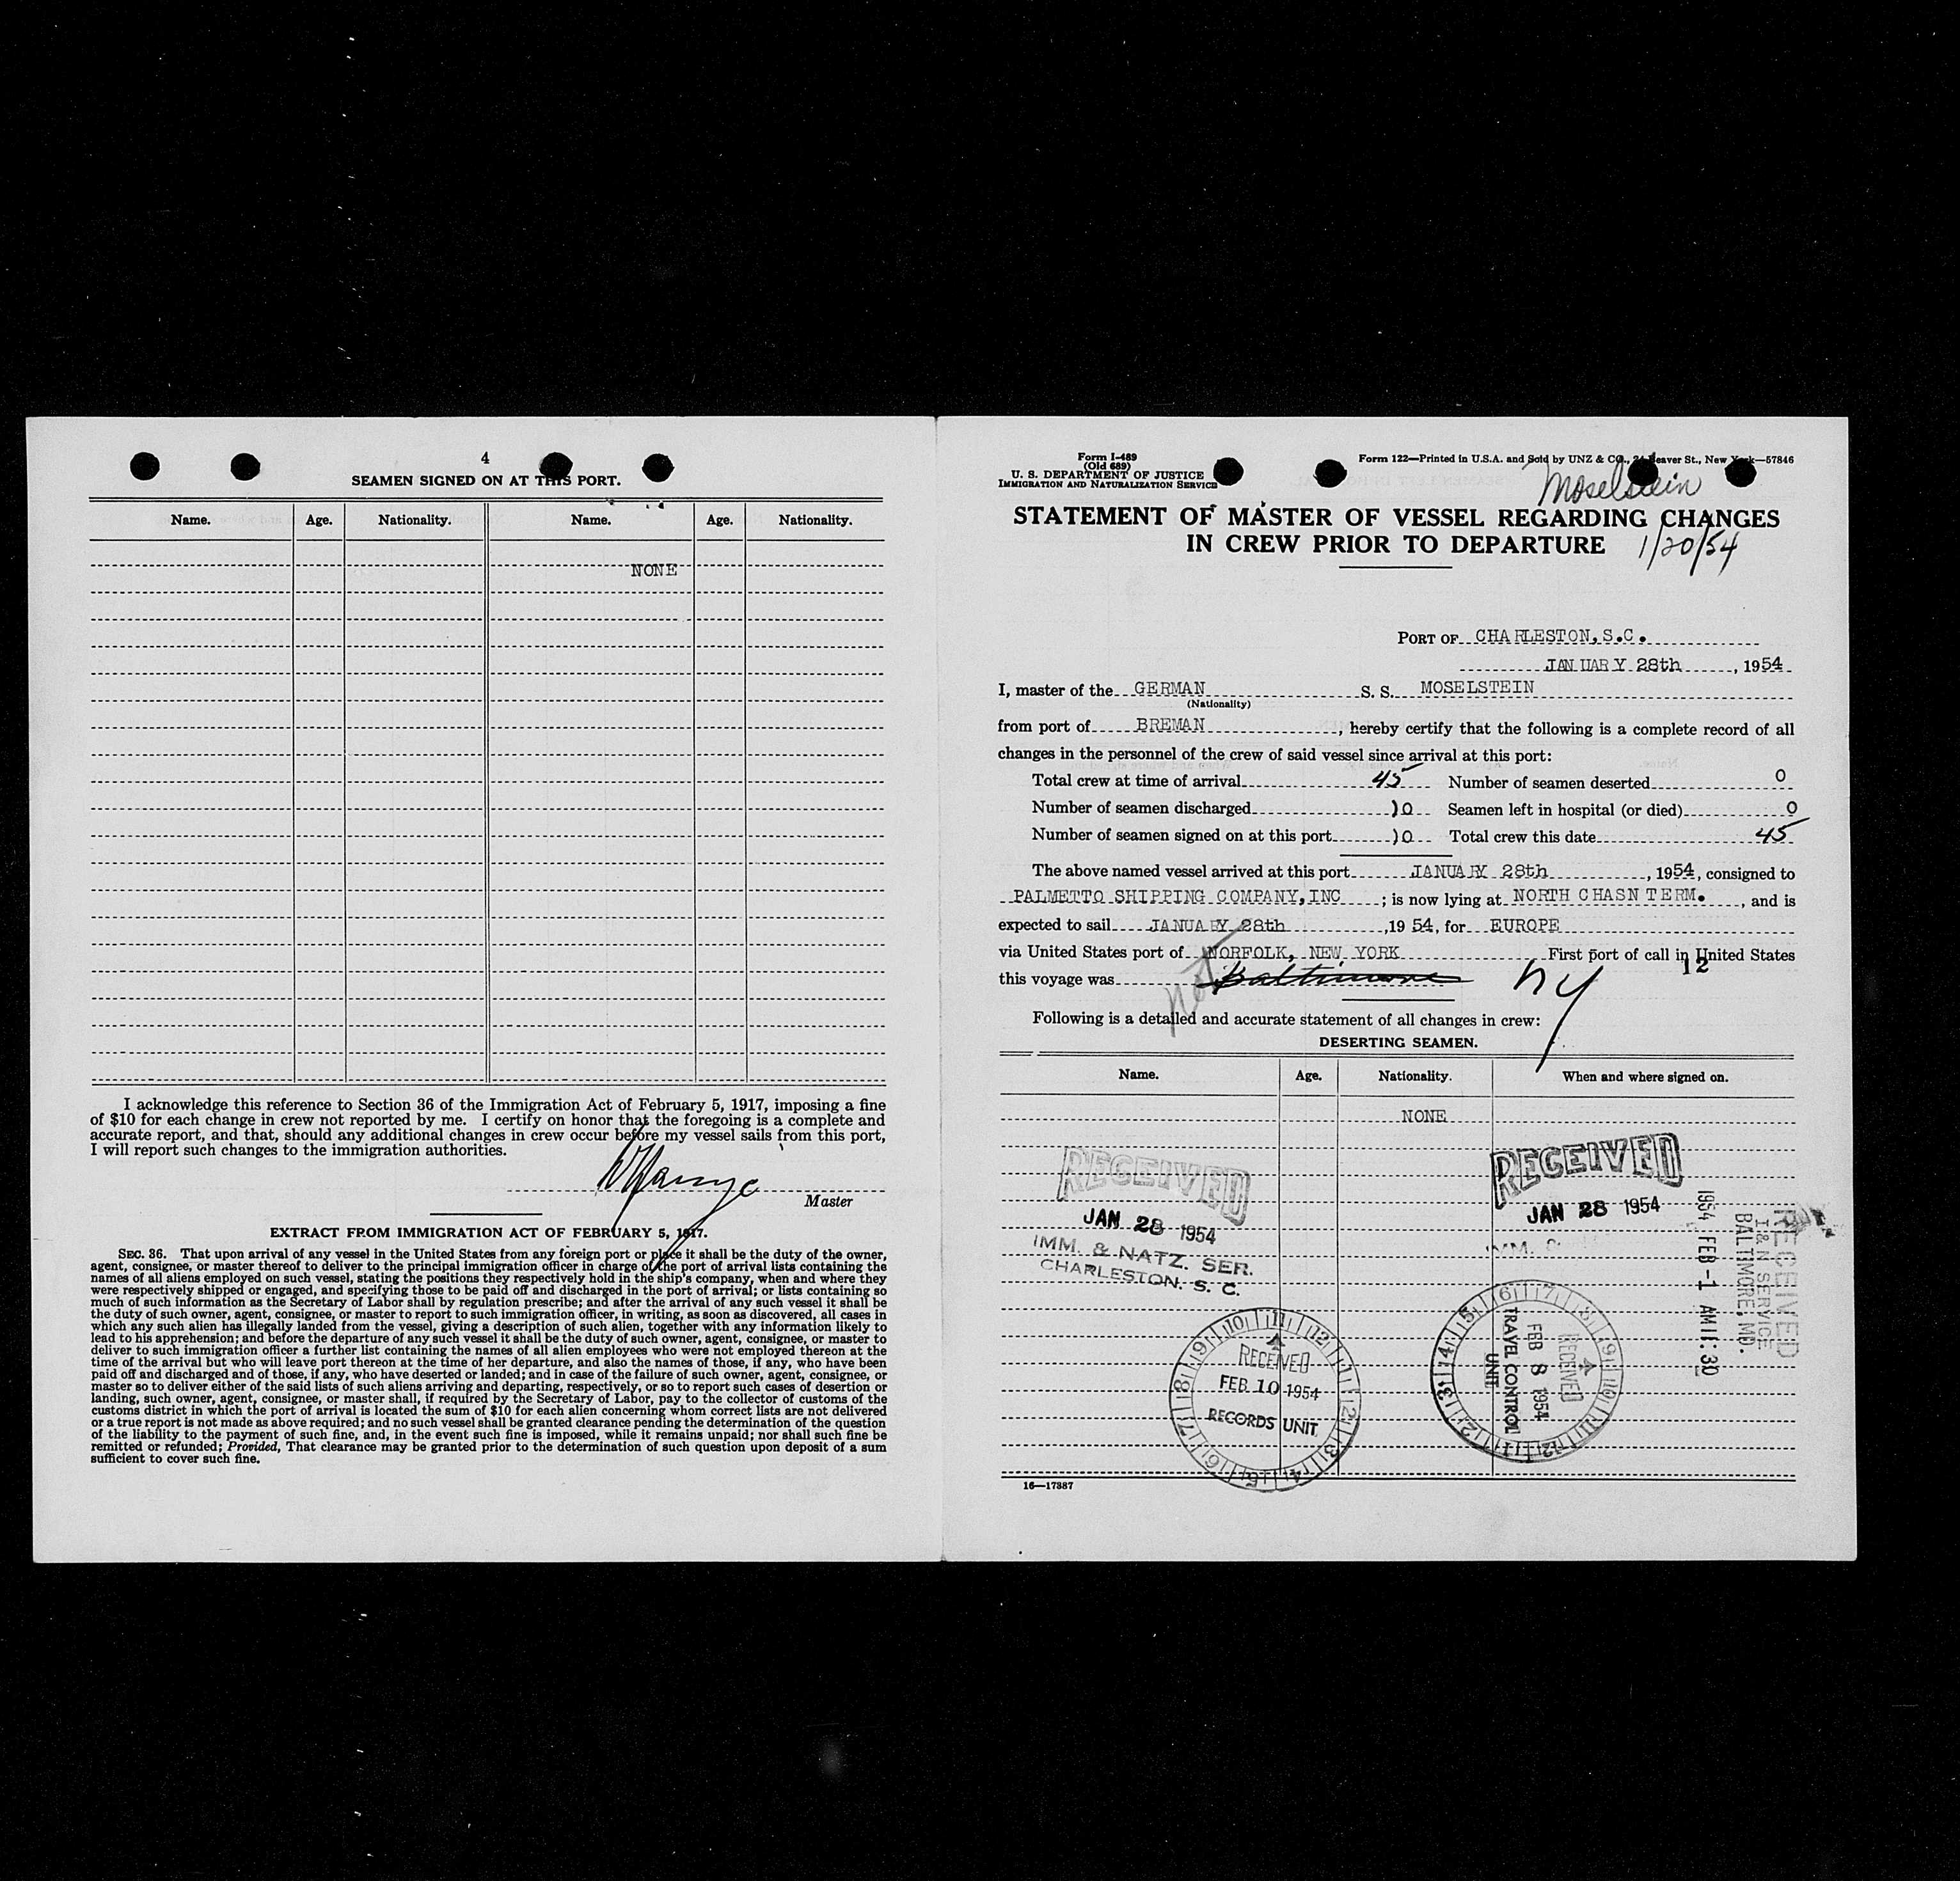 4
SEAMEN SIGNED ON AT THIS PORT.
Name. Age. Nationality. Name. Age. Nationality.
NONE
I acknowledge this reference to Section 36 of the Immigration Act of February 5, 1917, imposing a fine
of $10 for each change in crew not reported by me. I certify on honor that the foregoing is a complete and
accurate report, and that, should any additional changes in crew occur before my vessel sails from this port,
I will report such changes to the immigration authorities.
Master
EXTRACT FROM IMMIGRATION ACT OF FEBRUARY 5, 1917.
SEC. 36. That upon arrival of any vessel in the United States from any foreign port or place it shall be the duty of the owner,
agent, consignee, or master thereof to deliver to the principal immigration officer in charge of the port of arrival lists containing the
names of all aliens employed on such vessel, stating the positions they respectively hold in the ship's company, when and where they
were respectively shipped or engaged, and specifying those to be paid off and discharged in the port of arrival; or lists containing so
much of such information as the Secretary of Labor shall by regulation prescribe; and after the arrival of any such vessel it shall be
the duty of such owner, agent, consignee, or master to report to such immigration officer, in writing, as soon as discovered, all cases in
which any such alien has illegally landed from the vessel, giving a description of such alien, together with any information likely to
lead to his apprehension; and before the departure of any such vessel it shall be the duty of such owner, agent, consignee, or master to
deliver to such immigration officer a further list containing the names of all alien employees who were not employed thereon at the
time of the arrival but who will leave port thereon at the time of her departure, and also the names of those, if any, who have been
paid off and discharged and of those, if any, who have deserted or landed; and in case of the failure of such owner, agent, consignee, or
master so to deliver either of the said lists of such aliens arriving and departing, respectively, or so to report such cases of desertion or
landing, such owner, agent, consignee, or master shall, if required by the Secretary of Labor, pay to the collector of customs of the
customs district in which the port of arrival is located the sum of $10 for each alien concerning whom correct lists are not delivered
or a true report is not made as above required; and no such vessel shall be granted clearance pending the determination of the question
of the liability to the payment of such fine, and, in the event such fine is imposed, while it remains unpaid; nor shall such fine be
remitted or refunded; Provided, That clearance may be granted prior to the determination of such question upon deposit of a sum
sufficient to cover such fine.
Form I-489
(Old 689)
U. S. DEPARTMENT OF JUSTICE
IMMIGRATION AND NATURALIZATION SERVICE
Form 122—Printed in U.S.A. and Sold by UNZ & CO., Beaver St., New York—57846
Moselstein
STATEMENT OF MASTER OF VESSEL REGARDING CHANGES
IN CREW PRIOR TO DEPARTURE 1/20/54
PORT OF CHARLESTON, S.C.
JANUARY 28th, 1954
I, master of the GERMAN S. S. MOSELSTEIN
(Nationality)
from port of BREMAN, hereby certify that the following is a complete record of all
changes in the personnel of the crew of said vessel since arrival at this port:
Total crew at time of arrival 45 Number of seamen deserted 0
Number of seamen discharged )0 Seamen left in hospital (or died) 0
Number of seamen signed on at this port )0 Total crew this date 45
The above named vessel arrived at this port JANUARY 28th, 1954, consigned to
PALMETTO SHIPPING COMPANY, INC; is now lying at NORTH CHASN TERM., and is
expected to sail JANUARY 28th, 19 54, for EUROPE
via United States port of NORFOLK, NEW YORK First port of call in United States
12
this voyage was not Baltimore NY
Following is a detailed and accurate statement of all changes in crew:
DESERTING SEAMEN.
Name. Age. Nationality. When and where signed on.
NONE
RECEIVED
JAN 28 1954
IMM. & NATZ. SER.
CHARLESTON. S. C.
RECEIVED
JAN 28 1954
RECEIVED
I & N SERVICE
BALTIMORE, MD.
1954 FEB -1 AM 11:30
RECEIVED
FEB 10 1954
RECORDS UNIT
RECEIVED
FEB 8 1954
TRAVEL CONTROL
UNIT
16—17387